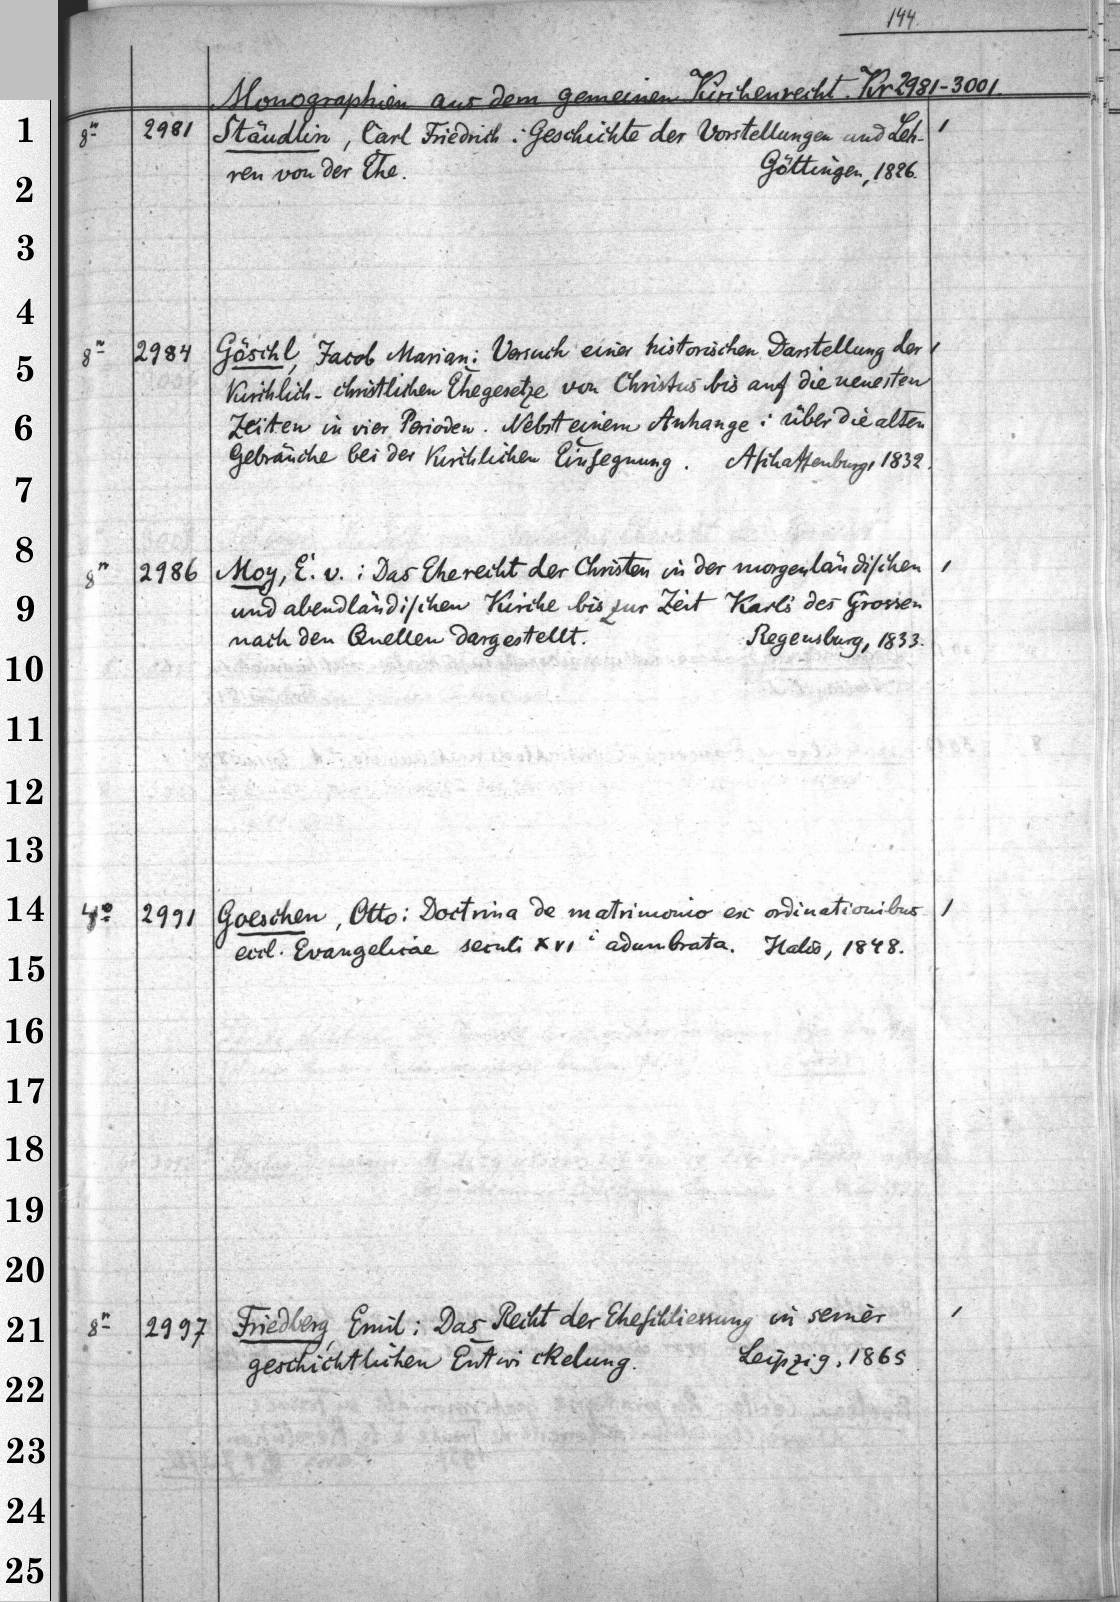 144.
Monographien aus dem gemeinen Kirchenrecht. Kr 2981-3001.
1 8º 2981 Stäudlin, Carl Friedrich: Geschichte der Vorstellungen und Leh- 1
2 ren von der Ehe. Göttingen, 1826.
3
4
8º 2984 Göschl, Jacob Marian: Versuch einer historischen Darstellung der 1
5 kirchlich-christlichen Ehegesetze von Christus bis auf die neuesten
6 Zeiten in vier Perioden. Nebst einem Anhange: über die alten
Gebräuche bei der kirchlichen Einsegnung. Aschaffenburg, 1832.
7
8 8º 2986 Moy, E. v.: Das Eherecht der Christen in der morgenländischen 1
9 und abendländischen Kirche bis zur Zeit Karls des Grossen
nach den Quellen dargestellt. Regensburg, 1833.
10
11
12
13
14 4º 2991 Goeschen, Otto: Doctrina de matrimonio ex ordinationibus 1
15 eccl. Evangelicae seculi XVIi adumbrata. Halis, 1848.
16
17
18
19
20
21 8º 2997 Friedberg, Emil: Das Recht der Eheschliessung in seiner 1
geschichtlichen Entwickelung. Leipzig, 1865
22
23
24
25